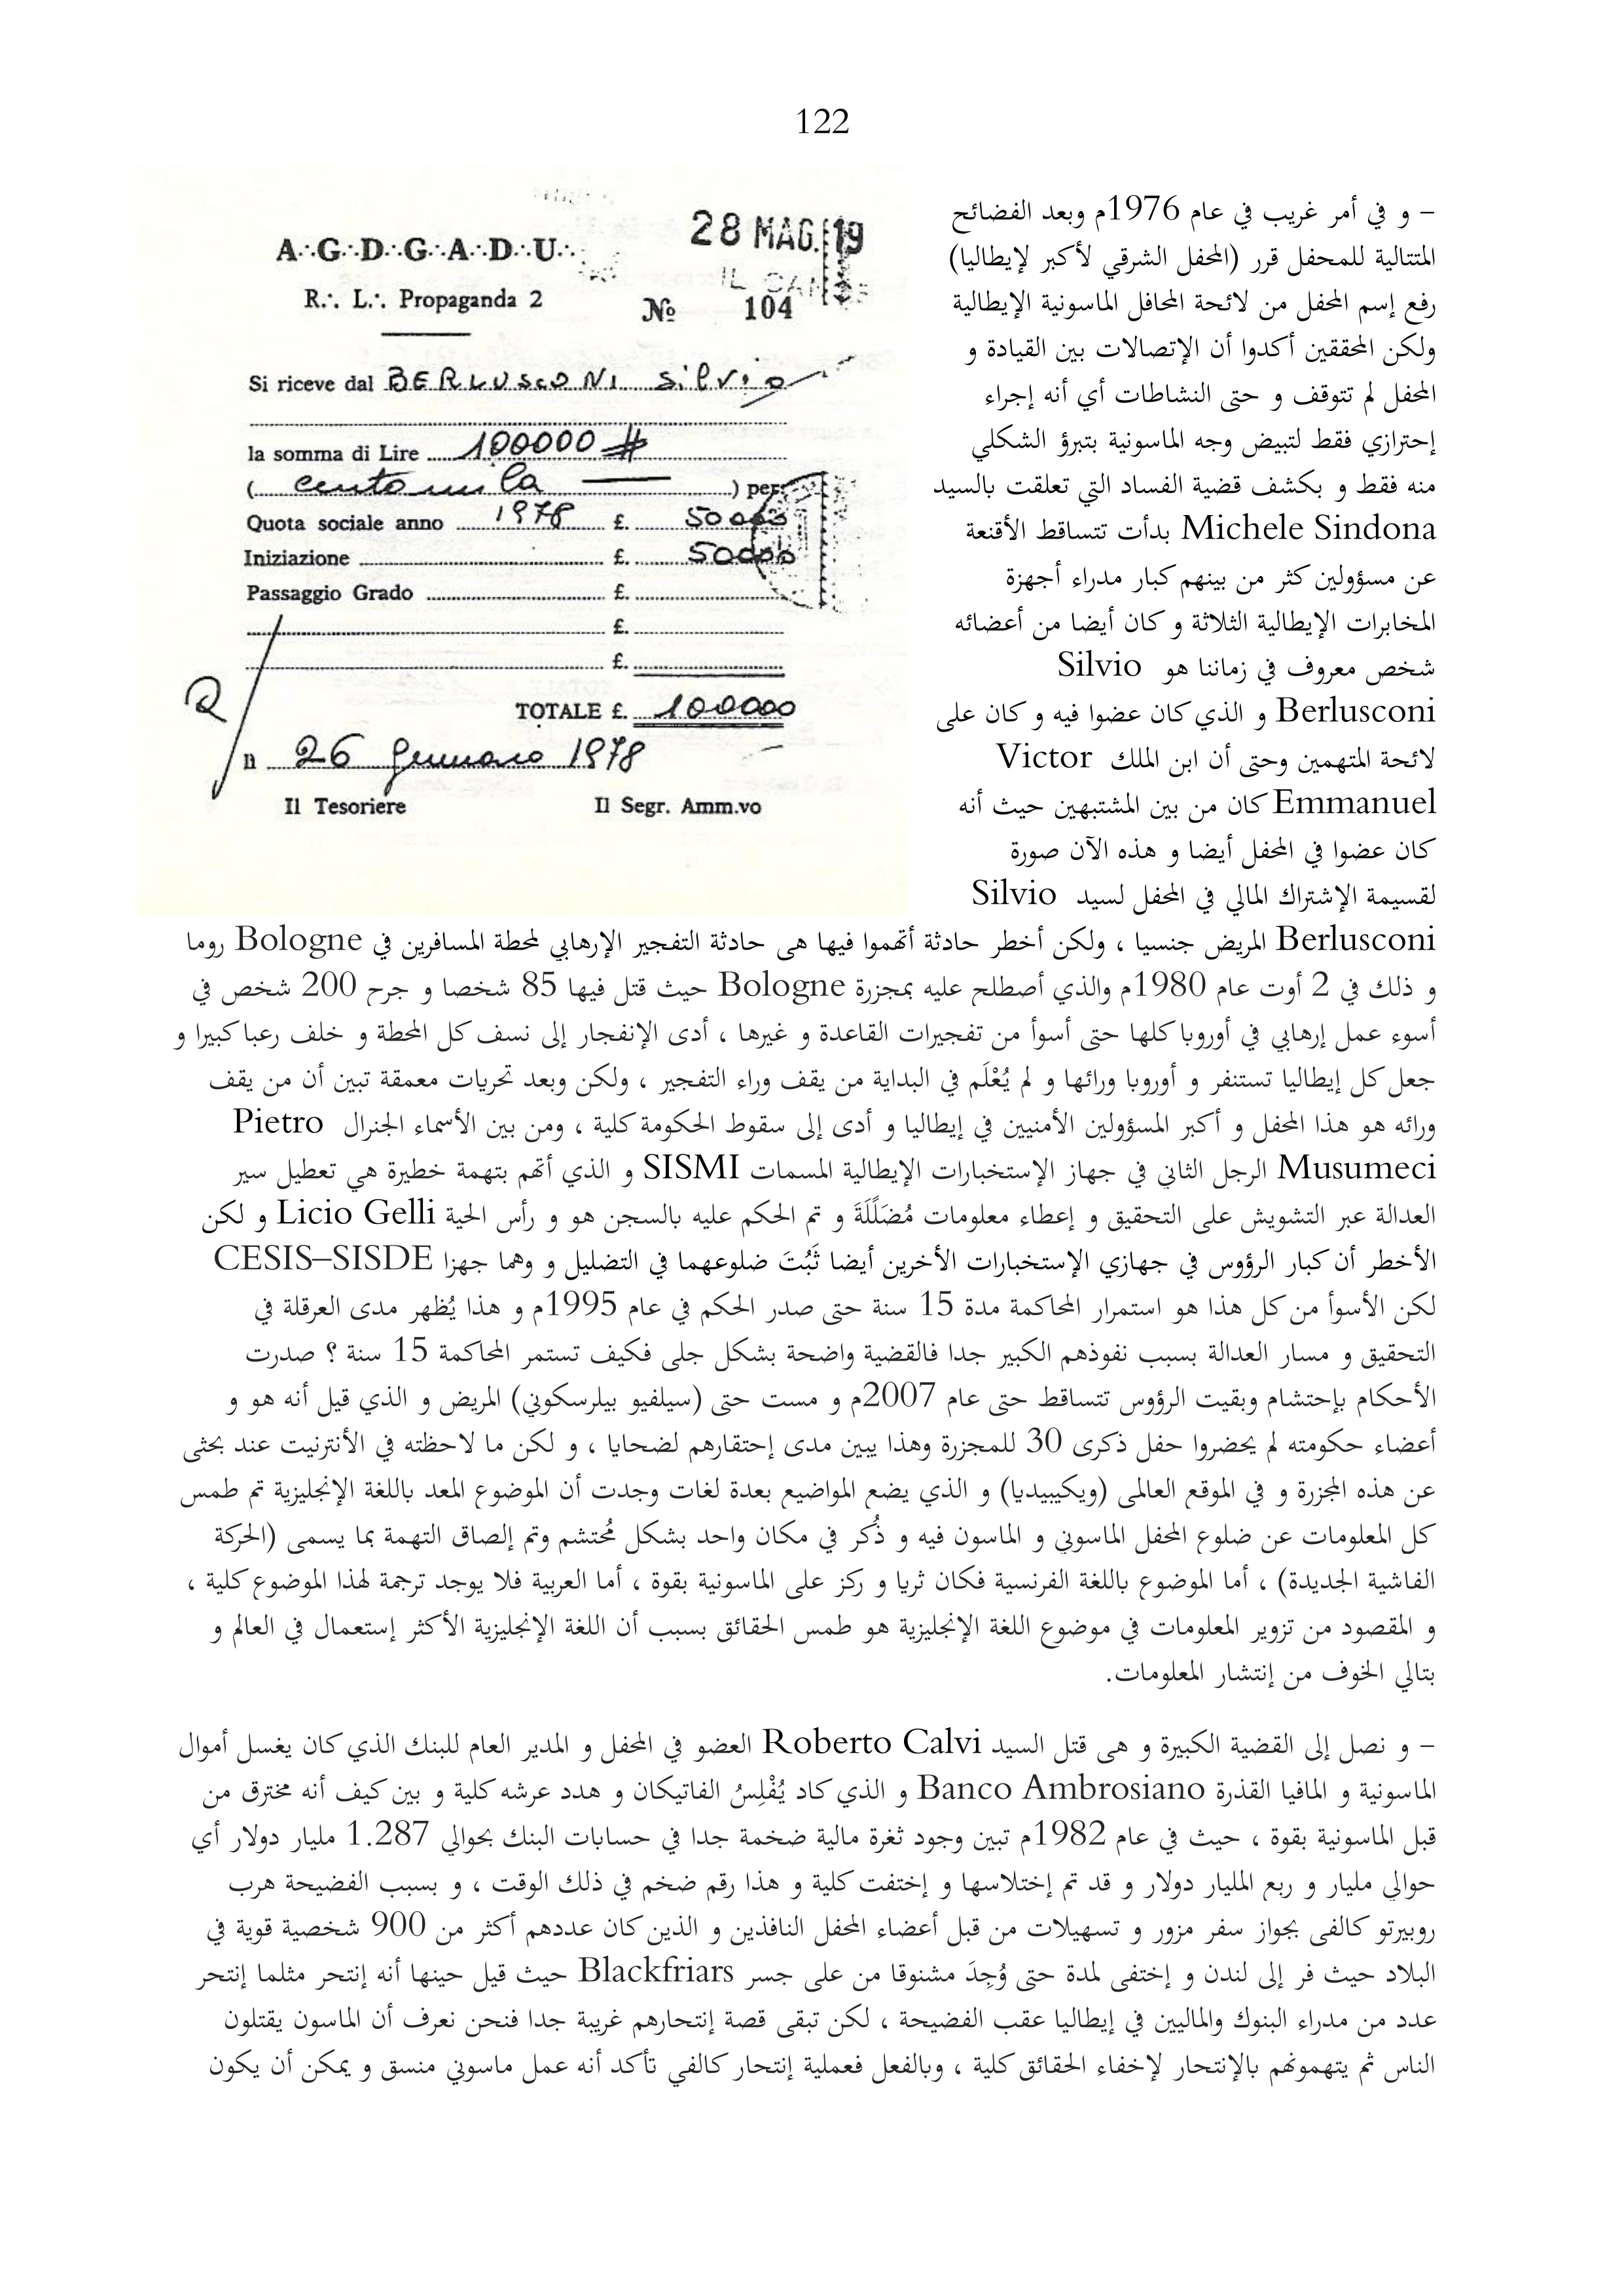 122
– و في أمر غريب في عام 1976م وبعد الفضائح
المتتالية للمحفل قرر (المحفل الشرقي لأكبر لإيطاليا)
رفع إسم المحفل من لائحة المحافل الماسونية الإيطالية
ولكن المحققين أكدوا أن الإتصالات بين القيادة و
المحفل لم تتوقف و حتى النشاطات أي أنه إجراء
إحترازي فقط لتبيض وجه الماسونية بتبرؤ الشكلي
منه فقط و بكشف قضية الفساد التي تعلقت بالسيد
Michele Sindona بدأت تتساقط الأقنعة
عن مسؤولين كثر من بينهم كبار مدراء أجهزة
المخابرات الإيطالية الثلاثة و كان أيضا من أعضائه
شخص معروف في زماننا هو Silvio
Berlusconi و الذي كان عضوا فيه و كان على
لائحة المتهمين وحتى أن ابن الملك Victor
Emmanuel كان من بين المشتبهين حيث أنه
كان عضوا في المحفل أيضا و هذه الآن صورة
لقسيمة الإشتراك المالي في المحفل لسيد Silvio
A∴G∴D∴G∴A∴D∴U∴
28 MAG. 19
R∴ L∴ Propaganda 2
№ 104
Si riceve dal BERLUSCONI Silvio
la somma di Lire 100000 #
( centomila ) per:
Quota sociale anno 1978 £. 50000
Iniziazione £. 50000
Passaggio Grado £.
£.
£.
TOTALE £. 100000
lì 26 Gennaio 1978
Il Tesoriere Il Segr. Amm.vo
Berlusconi المريض جنسيا ، ولكن أخطر حادثة أتهموا فيها هى حادثة التفجير الإرهابي لمحطة المسافرين في Bologne روما
و ذلك في 2 أوت عام 1980م والذي أصطلح عليه بمجزرة Bologne حيث قتل فيها 85 شخصا و جرح 200 شخص في
أسوء عمل إرهابي في أوروبا كلها حتى أسوأ من تفجيرات القاعدة و غيرها ، أدى الإنفجار إلى نسف كل المحطة و خلف رعبا كبيرا و
جعل كل إيطاليا تستنفر و أوروبا ورائها و لم يُعْلَم في البداية من يقف وراء التفجير ، ولكن وبعد تحريات معمقة تبين أن من يقف
ورائه هو هذا المحفل و أكبر المسؤولين الأمنيين في إيطاليا و أدى إلى سقوط الحكومة كلية ، ومن بين الأسماء الجنرال Pietro
Musumeci الرجل الثاني في جهاز الإستخبارات الإيطالية المسمات SISMI و الذي أتهم بتهمة خطيرة هي تعطيل سير
العدالة عبر التشويش على التحقيق و إعطاء معلومات مُضَلِّلَةَ و تم الحكم عليه بالسجن هو و رأس الحية Licio Gelli و لكن
الأخطر أن كبار الرؤوس في جهازي الإستخبارات الأخرين أيضا ثَبُتَ ضلوعهما في التضليل و وهما جهزا CESIS–SISDE
لكن الأسوأ من كل هذا هو استمرار المحاكمة مدة 15 سنة حتى صدر الحكم في عام 1995م و هذا يُظهر مدى العرقلة في
التحقيق و مسار العدالة بسبب نفوذهم الكبير جدا فالقضية واضحة بشكل جلى فكيف تستمر المحاكمة 15 سنة ؟ صدرت
الأحكام بإحتشام وبقيت الرؤوس تتساقط حتى عام 2007م و مست حتى (سيلفيو بيلرسكوني) المريض و الذي قيل أنه هو و
أعضاء حكومته لم يحضروا حفل ذكرى 30 للمجزرة وهذا يبين مدى إحتقارهم لضحايا ، و لكن ما لاحظته في الأنترنيت عند بحثى
عن هذه المجزرة و في الموقع العالمى (ويكيبيديا) و الذي يضع المواضيع بعدة لغات وجدت أن الموضوع المعد باللغة الإنجليزية تم طمس
كل المعلومات عن ضلوع المحفل الماسوني و الماسون فيه و ذُكر في مكان واحد بشكل مُحتشم وتم إلصاق التهمة بما يسمى (الحركة
الفاشية الجديدة) ، أما الموضوع باللغة الفرنسية فكان ثريا و ركز على الماسونية بقوة ، أما العربية فلا يوجد ترجمة لهذا الموضوع كلية ،
و المقصود من تزوير المعلومات في موضوع اللغة الإنجليزية هو طمس الحقائق بسبب أن اللغة الإنجليزية الأكثر إستعمال في العالم و
بتالي الخوف من إنتشار المعلومات.
– و نصل إلى القضية الكبيرة و هى قتل السيد Roberto Calvi العضو في المحفل و المدير العام للبنك الذي كان يغسل أموال
الماسونية و المافيا القذرة Banco Ambrosiano و الذي كاد يُفْلِسُ الفاتيكان و هدد عرشه كلية و بين كيف أنه مخترق من
قبل الماسونية بقوة ، حيث في عام 1982م تبين وجود ثغرة مالية ضخمة جدا في حسابات البنك بحوالي 1.287 مليار دولار أي
حوالي مليار و ربع المليار دولار و قد تم إختلاسها و إختفت كلية و هذا رقم ضخم في ذلك الوقت ، و بسبب الفضيحة هرب
روبيرتو كالفى بجواز سفر مزور و تسهيلات من قبل أعضاء المحفل النافذين و الذين كان عددهم أكثر من 900 شخصية قوية في
البلاد حيث فر إلى لندن و إختفى لمدة حتى وُجِدَ مشنوقا من على جسر Blackfriars حيث قيل حينها أنه إنتحر مثلما إنتحر
عدد من مدراء البنوك والماليين في إيطاليا عقب الفضيحة ، لكن تبقى قصة إنتحارهم غريبة جدا فنحن نعرف أن الماسون يقتلون
الناس ثم يتهمونهم بالإنتحار لإخفاء الحقائق كلية ، وبالفعل فعملية إنتحار كالفي تأكد أنه عمل ماسوني منسق و يمكن أن يكون